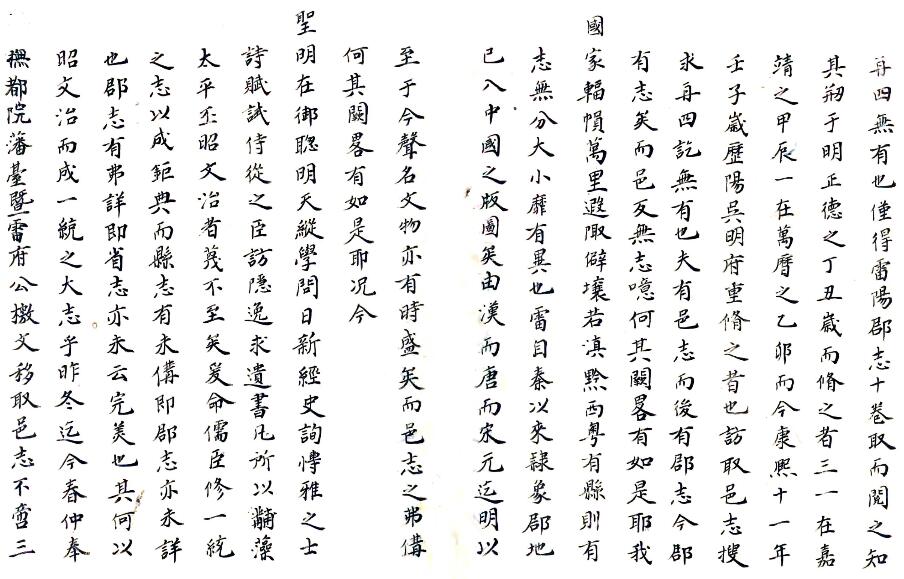 再四無有也僅得雷陽郡志十卷取而閱之知
其剏于明正德之丁丑歲而脩之者三一在嘉
靖之甲辰一在萬曆之乙卯而今康熙十一年
壬子歲歷陽吳明府重脩之昔也訪取邑志搜
求再四訖無有也夫有邑志而後有郡志今郡
有志矣而邑反無志噫何其闕畧有如是耶我
國家輻幀萬里遐陬僻壤若滇黔西粵有縣則有
志無分大小靡有異也雷自秦以來隸象郡地
已入中國之版圖矣由漢而唐而宋元迄明以
至于今聲名文物亦有時盛矣而邑志之弗俻
何其闕畧有如是耶况今
聖明在御聰明天縱學問日新經史詢博雅之士
詩賦試侍從之臣訪隱逸求遺書凡所以黼藻
太平丕昭文治者蔑不至矣爰命儒臣修一統
之志以成鉅典而縣志有未俻即郡志亦未詳
也郡志有弗詳即省志亦未云完美也其何以
昭文治而成一統之大志乎昨冬迄今春仲奉
撫都院藩臺暨雷府公檄文移取邑志不啻三